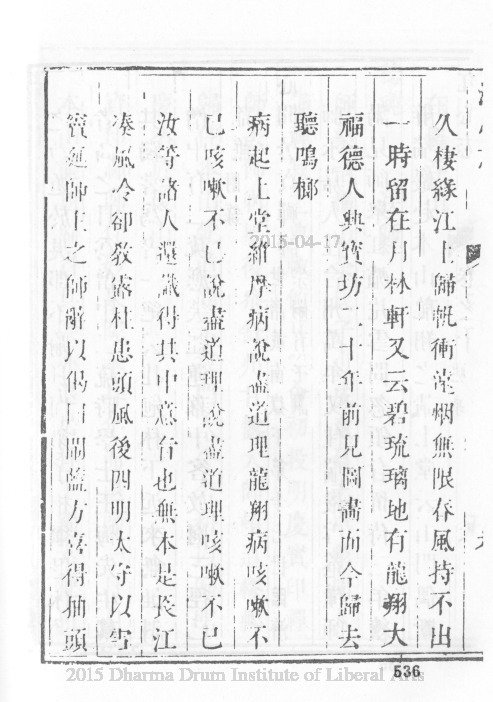 久棲緣江上歸帆衝濕烟無限春風持不出
一時留在月林軒又云碧琉璃地有龍翔大
福德人興寶坊二十年前見圖畵而今歸去
聽鳴榔
病起上堂維摩病說盡道理龍翔病咳嗽不
已咳嗽不已說盡道理說盡道理咳嗽不已
汝等諸人還識得其中意旨也無本是長江
凑風冷卻敎露柱患頭風後四明太守以雪
竇延師主之師辭以偈曰鬧籃方喜得抽頭
2015-04-17
536
2015 Dharma Drum Institute of Liberal Arts